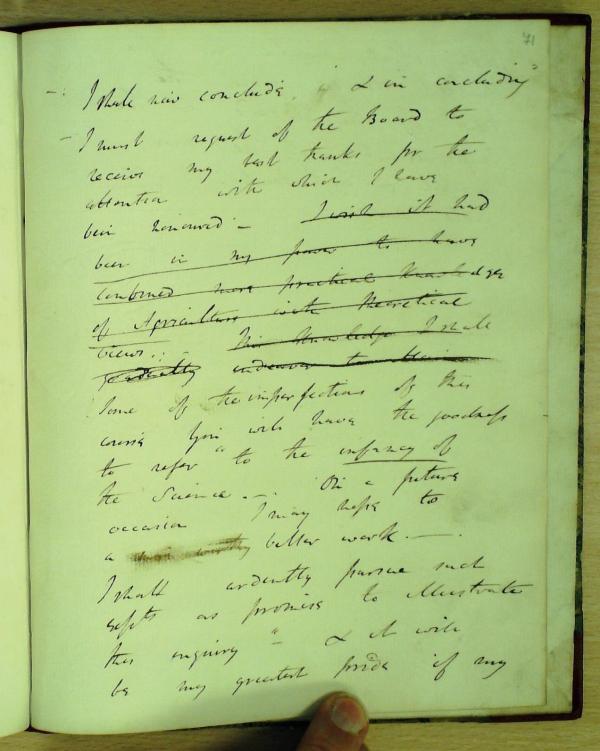 71
—: I shall now conclude & in concluding
— I must request of the Board to
receive my best thanks for the
attention with which I have
been honoured — I wish it had
been in my power to have
combined more practical knowledge
of Agriculture with theoretical
views. — This knowledge I shall
ardently endeavor to attain
Some of the imperfections of this
course You will have the goodness
to refer to the infancy of
the Science. — On a future
occasion I may hope to
a better work. —
I shall ardently pursue such
as promise to illustrate
this enquiry & it will
be my greatest pride if my